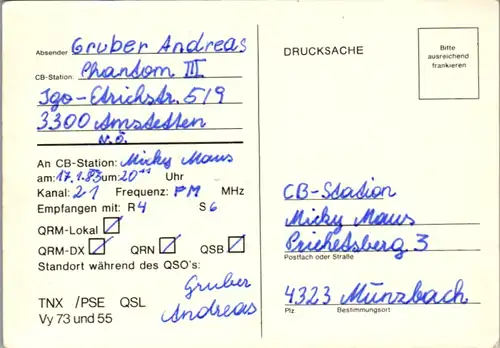 Absender Gruber Andreas
CB-Station: Phantom III
Igo-Etrichstr. 5/9
3300 Amstetten
N.Ö.
An CB-Station: Micky Maus
am: 17.1.83 um: 20 Uhr
Kanal: 21 Frequenz: FM MHz
Empfangen mit: R 4 S 6
QRM-Lokal
QRM-DX QRN QSB
Standort während des QSO's:
Gruber
Andreas
TNX /PSE QSL
Vy 73 und 55
DRUCKSACHE
Bitte
ausreichend
frankieren
CB-Station
Micky Maus
Priehetsberg 3
Postfach oder Straße
4323 Münzbach
Plz. Bestimmungsort